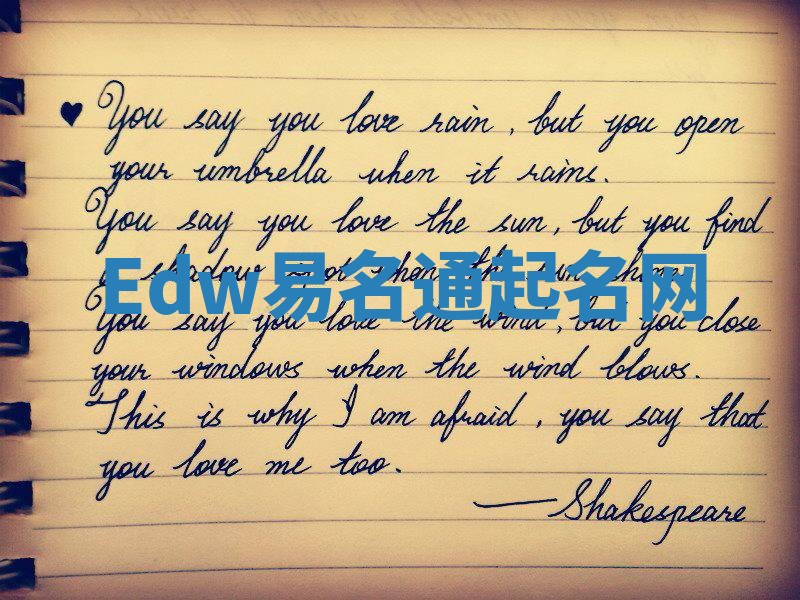 ♥ You say you love rain, but you open
your umbrella when it rains.
You say you love the sun, but you find
a shadow spot when the sun shines.
Edw易名通起名网
You say you love the wind, but you close
your windows when the wind blows.
This is why I am afraid, you say that
you love me too.
—Shakespeare